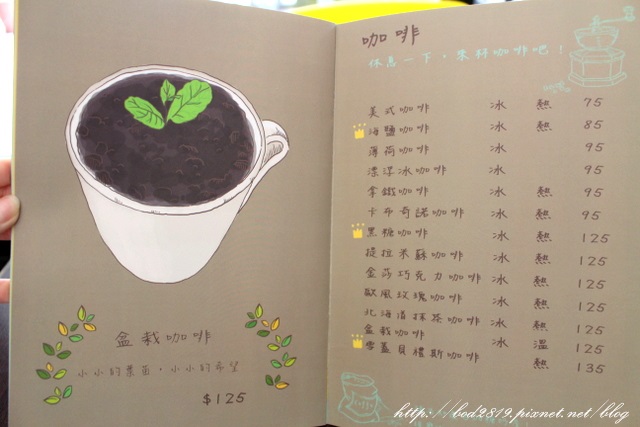 盆栽咖啡
小小的葉苗，小小的希望
$125
咖啡
休息一下，來杯咖啡吧！
美式咖啡 冰 熱 75
海鹽咖啡 冰 熱 85
薄荷咖啡 冰 95
漂浮冰咖啡 冰 95
拿鐵咖啡 冰 熱 95
卡布奇諾咖啡 冰 熱 95
黑糖咖啡 冰 熱 125
提拉米蘇咖啡 冰 熱 125
金莎巧克力咖啡 冰 熱 125
歐風玫瑰咖啡 冰 熱 125
北海道抹茶咖啡 冰 熱 125
盆栽咖啡 冰 溫 125
雪蓋貝禮斯咖啡 熱 135
http://bod2819.pixnet.net/blog